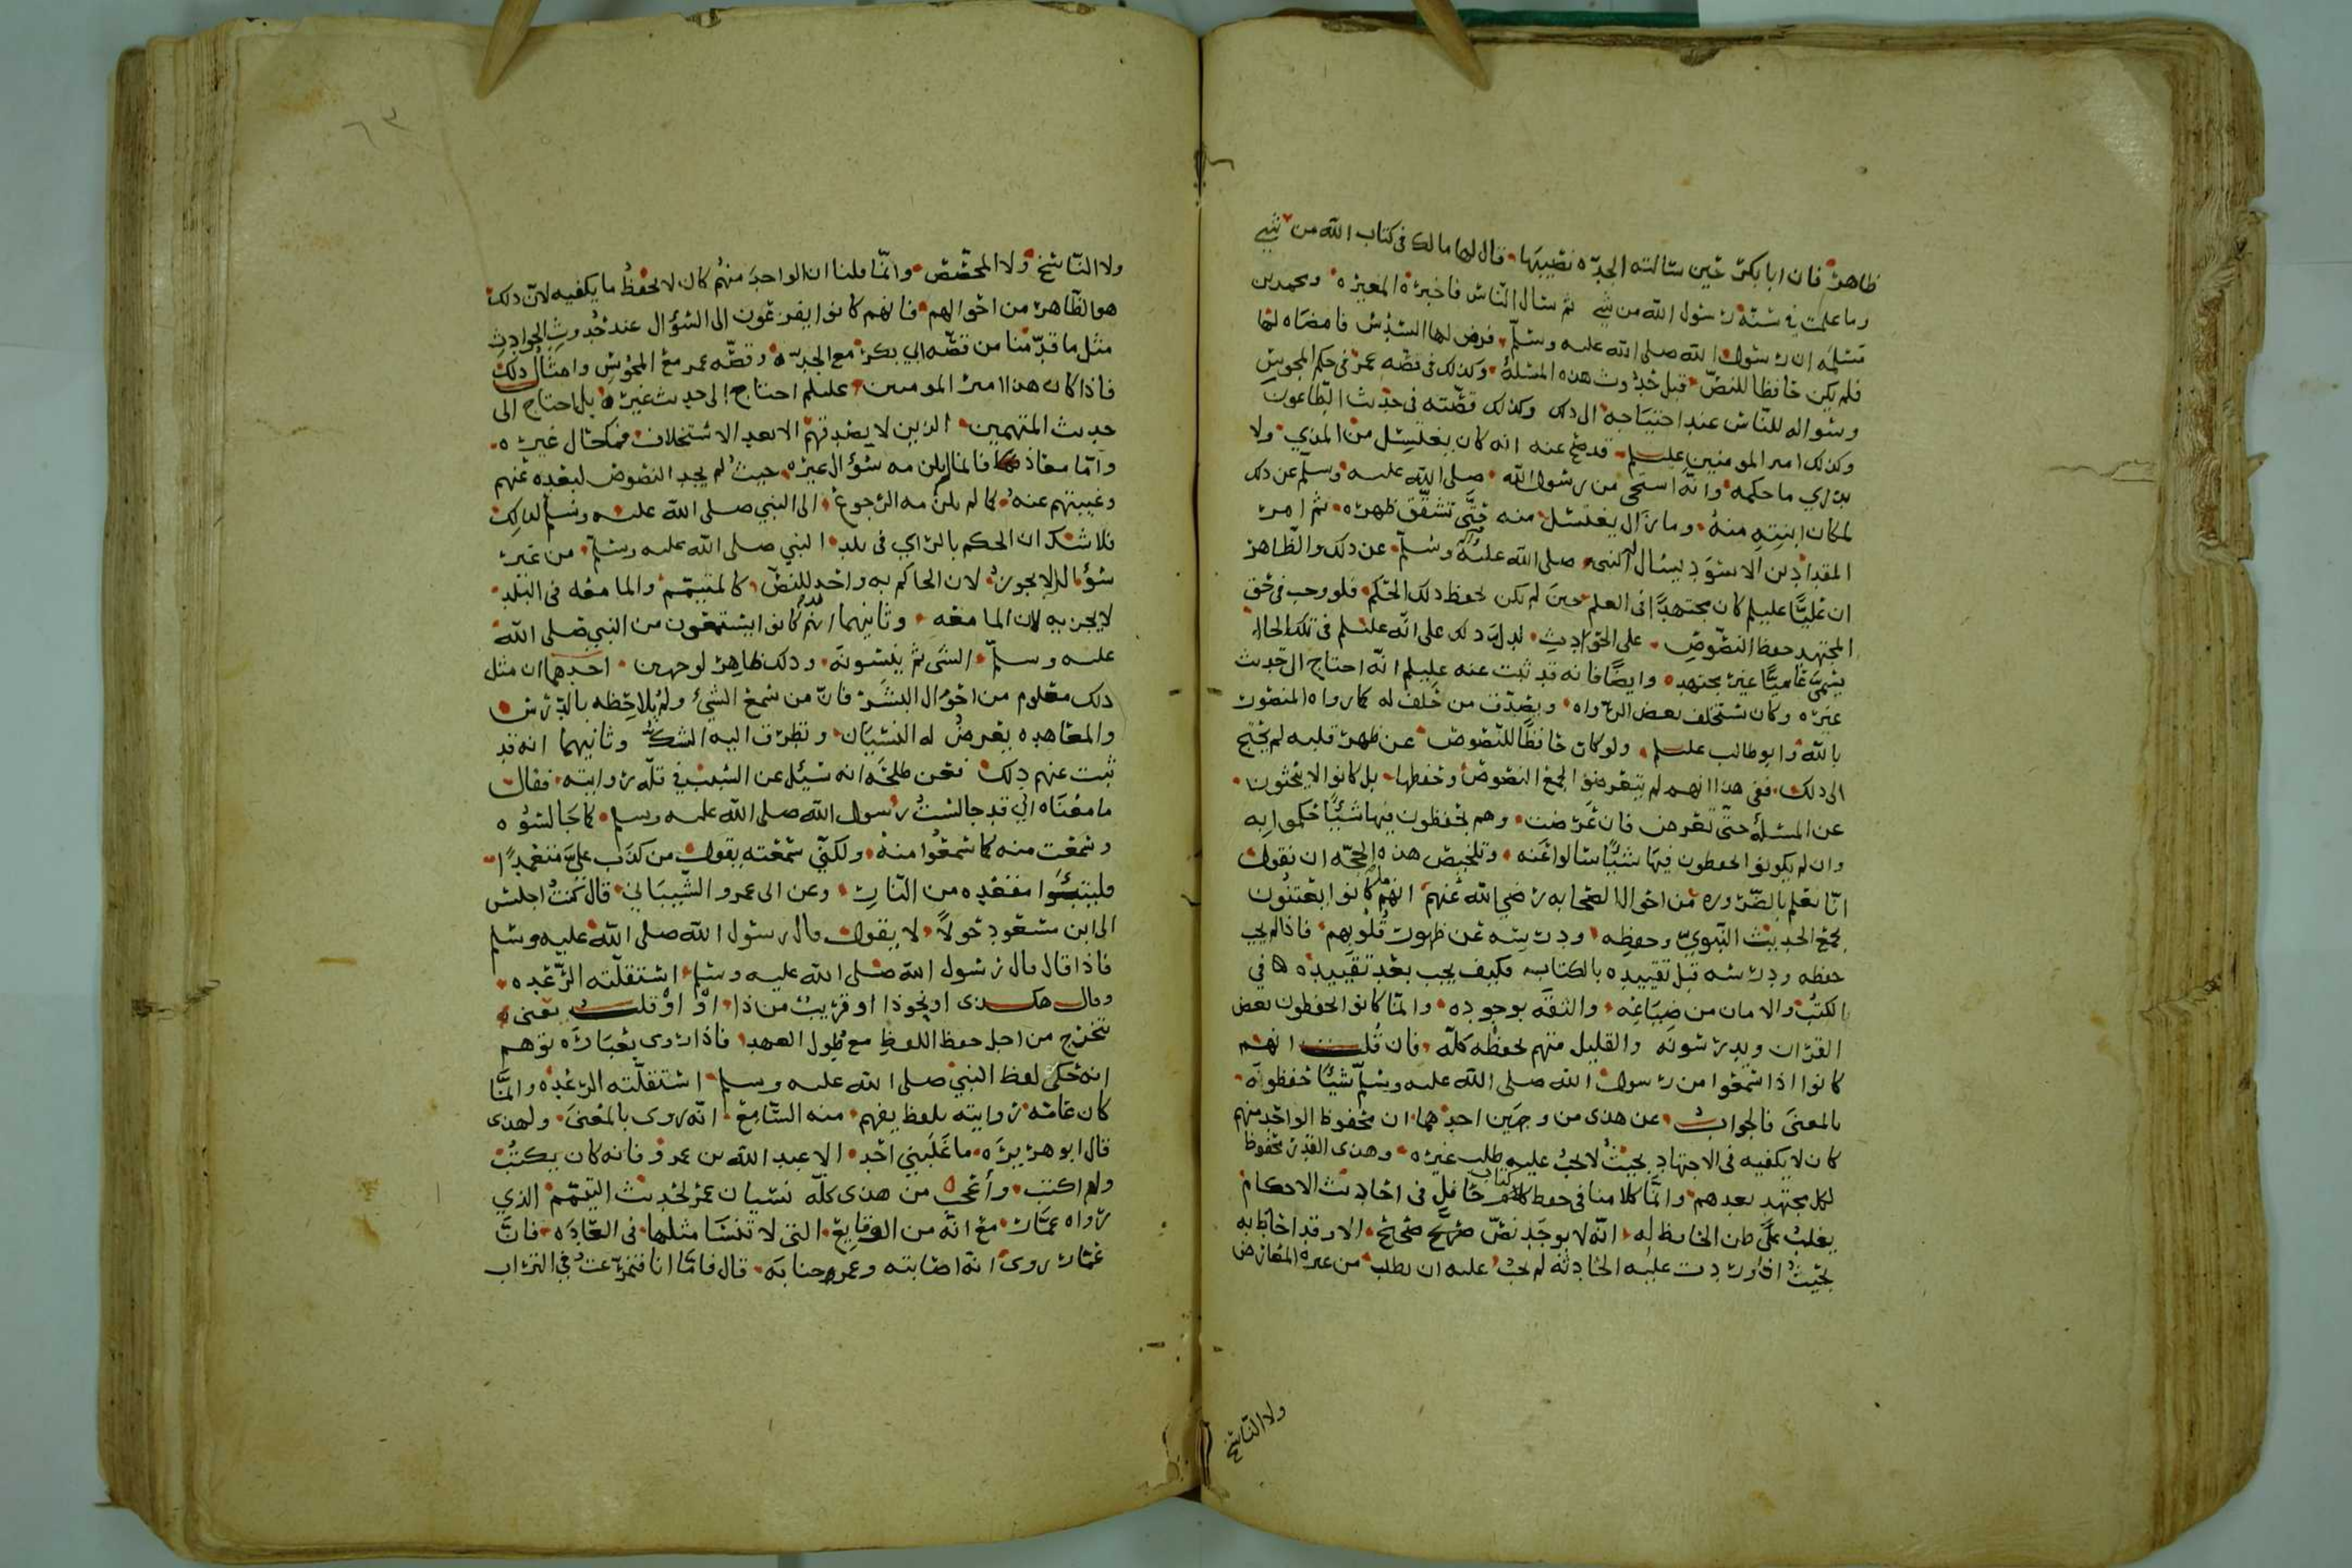 ظاهر فان ابا بكر حين سالته الجده نصيبها قال لها مالك في كتاب الله من شي
وما علمت في سنة رسول الله من شي ثم سال الناس فاخبره المغيره ومحمد بن
مسلمه ان رسول الله صلى الله عليه وسلم فرض لها السدس فامضاه لها
فلم يكن حافظا للنص قبل حدوث هذه المسئلة وكذلك في قصه عمر في حكم المجوس
وسواله للناس عند احتياجه الى ذلك وكذلك قصته في حديث الطاعون
وكذلك امير المومنين عليلم قد صح عنه انه كان يغتسل من المذي ولا
يدري ما حكمه وانه استحى من رسول الله صلى الله عليه وسلم عن ذلك
لمكان ابنته منه وما زال يغتسل منه حتى تشقق ظهره ثم امر
المقداد بن الاسود يسال النبي صلى الله عليه وآله وسلم عن ذلك والظاهر
ان عليا عليلم كان مجتهدا في العلم حين لم يكن يحفظ ذلك الحكم فلو وجب في حق
المجتهد حفظ النصوص على الحوادث لدل ذلك على انه عليلم في تلك الحال
يسمى عاميا غير مجتهد وايضا فانه قد ثبت عنه عليلم انه احتاج الى حديث
غيره وكان يستحلف بعض الرواه ويصدق من حلف له كما رواه المنصور
بالله وابو طالب عليلم ولو كان حافظا للنصوص عن ظهر قلبه لم يحتج
الى ذلك ففي هذا انهم لم يتعرضوا لجمع النصوص وحفظها بل كانوا لا يبحثون
عن المسئلة حتى تعرض فان عرضت وهم يحفظون فيها شيئا حكموا به
وان لم يكونوا يحفظون فيها شيئا سالوا عنه وتلخيص هذه الحجه ان نقول
انا نعلم بالضروره من احوال الصحابه رضي الله عنهم انهم ما كانوا يعتنون
بجمع الحديث النبوي وحفظه ودرسه عن ظهور قلوبهم فاذا لم يجب
حفظه ودرسه قبل تقييده بالكتابه فكيف يجب بعد تقييده في
الكتب والامان من ضياعه والثقه بوجوده وانما كانوا يحفظون بعض
القران ويدرسونه والقليل منهم يحفظه كله فان قلت انهم
كانوا اذا سمعوا من رسول الله صلى الله عليه وسلم شيئا حفظوه
بالمعنى فالجواب عن هذى من وجهين احدهما ان محفوظ الواحد منهم
كان لا يكفيه في الاجتهاد بحيث لا يجب عليه طلب غيره وهذى القدر محفوظ
لكل مجتهد بعدهم وانما كلامنا في حفظ كتاب حافل في احاديث الاحكام
يغلب على ظن الحافظ له انه لا يوجد نص صريح صحيح الا وقد احاط به
بحيث اذا وردت عليه الحادثه لم يجب عليه ان يطلب من غيره المعارض
ولا الناسخ
ولا الناسخ ولا المخصص وانما قلنا ان الواحد منهم كان لا يحفظ ما يكفيه لان ذلك
هو الظاهر من احوالهم فانهم كانوا يفزعون الى السؤال عند حدوث الحوادث
مثل ما قدمنا من قصه ابي بكر مع الجده وقصه عمر مع المجوس وامثال ذلك
فاذا كان هذا امير المومنين عليلم احتاج الى حديث غيره بل احتاج الى
حديث المتهمين الذين لا يصدقهم الا بعد الاستحلاف فكيف حال غيره
واما معاذ فانما لم يلزمه سؤال غيره حيث لم يجد النصوص لبعده عنهم
وغيبتهم عنه كما لم يلزمه الرجوع الى النبي صلى الله عليه وسلم لذلك
فلا شك ان الحكم بالراي في بلد النبي صلى الله عليه وسلم من غير
سؤاله لا يجوز لان الحاكم به واجد للنص كالمتيمم والما معه في البلد
لا يجزيه لان الما معه وثانيهما انهم قد كانوا يستمعون من النبي صلى الله
عليه وسلم الشي ثم ينسونه وذلك ظاهر لوجهين احدهما ان مثل
ذلك معلوم من احوال البشر فان من سمع الشي ولم يلاحظه بالدرس
والمعاهده يعرض له النسيان وتطرق اليه الشك وثانيهما انه قد
ثبت عنهم ذلك فعن طلحه انه سيل عن السبب في قله روايته فقال
ما معناه اني قد جالست رسول الله صلى الله عليه وسلم كما جالسوه
وسمعت منه كما سمعوا منه ولكني سمعته يقول من كذب علي متعمدا
فليتبوا مقعده من النار وعن ابي عمرو الشيباني قال كنت اجلس
الى ابن مسعود حولا لا يقول قال رسول الله صلى الله عليه وسلم
فاذا قال قال رسول الله صلى الله عليه وسلم استقلته الرعده
وقال هكذى او نحو ذا او قريب من ذا او او قلت يعنى
تحرج من اجل حفظ اللفظ مع طول العهد فاذا روى بعباره توهم
انه حكى لفظ النبي صلى الله عليه وسلم استقلته الرعده وانما
كان عامه روايته بلفظ يفهم منه السامع انه روى بالمعنى ولهذى
قال ابو هريره ما غلبني احد الا عبد الله بن عمرو فانه كان يكتب
ولم اكتب وأعجب من هذى كله نسيان عمر لحديث التيمم الذي
رواه عمار مع انه من الوقايع التي لا تنسا مثلها في العاده فان
عمار روى انه اصابته وعمر جنابه قال فاما انا فتمرغت في التراب